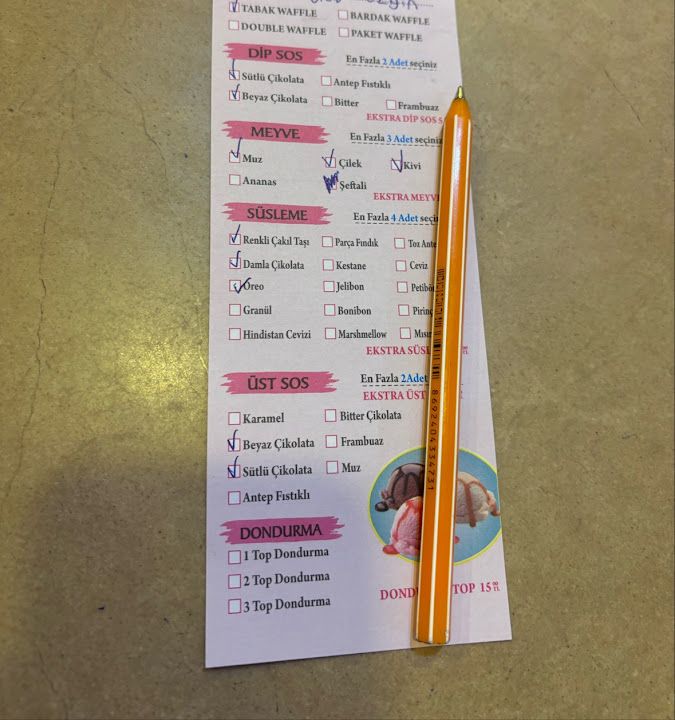 TABAK WAFFLE BARDAK WAFFLE
DOUBLE WAFFLE PAKET WAFFLE
DİP SOS En Fazla 2 Adet seçiniz
Sütlü Çikolata Antep Fıstıklı
Beyaz Çikolata Bitter Frambuaz
EKSTRA DİP SOS 5
MEYVE En Fazla 3 Adet seçiniz
Muz Çilek Kivi
Ananas Şeftali
EKSTRA MEYVE
SÜSLEME En Fazla 4 Adet seçin
Renkli Çakıl Taşı Parça Fındık Toz Ante
Damla Çikolata Kestane Ceviz
Oreo Jelibon Petibör
Granül Bonibon Pirinç
Hindistan Cevizi Marshmellow Mısır
EKSTRA SÜSL TL
ÜST SOS En Fazla 2Adet
EKSTRA ÜST
Karamel Bitter Çikolata
Beyaz Çikolata Frambuaz
Sütlü Çikolata Muz
Antep Fıstıklı
DONDURMA
1 Top Dondurma
2 Top Dondurma
3 Top Dondurma
DOND TOP 15 00 TL
8692404334731